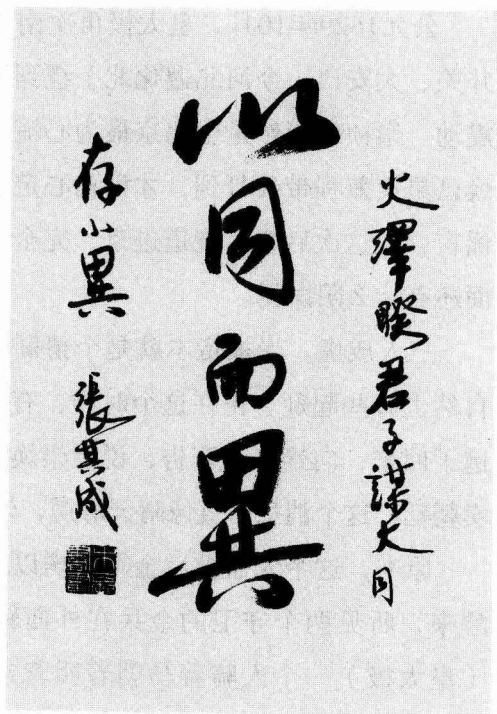 火澤睽君子謀大同
以同而異
存小異 張其成